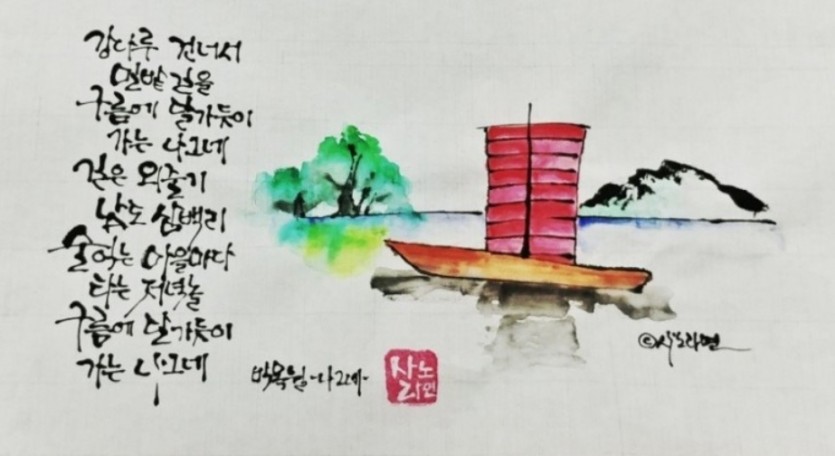 강나루 건너서
밀밭 길을
구름에 달가듯이
가는 나그네
길은 외줄기
남도 삼백리
술익는 마을마다
타는 저녁놀
구름에 달가듯이
가는 나그네
박목월 -나그네-
사노
라면
©사노라면